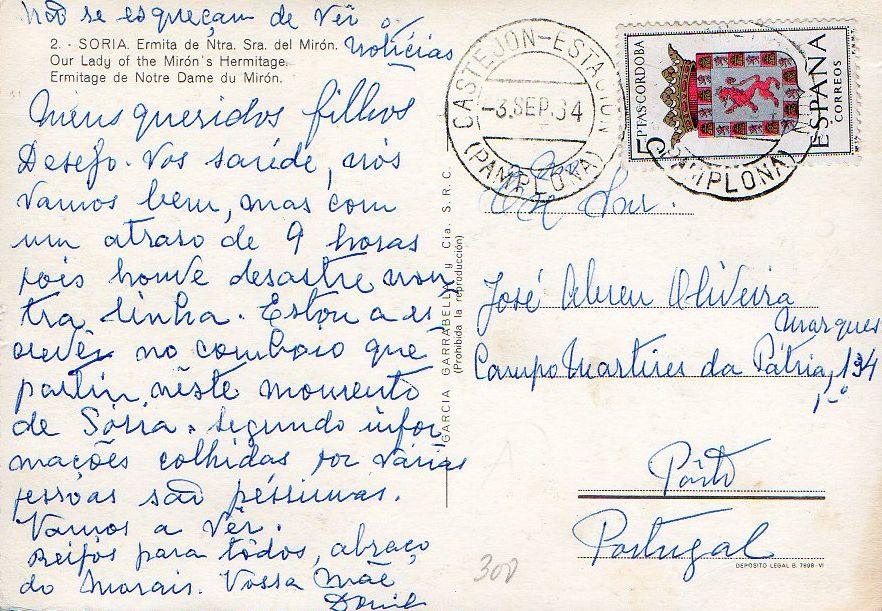 não se esqueçam de vêr
notícias
2. - SORIA. Ermita de Ntra. Sra. del Mirón.
Our Lady of the Mirón's Hermitage.
Ermitage de Notre Dame du Mirón.
Meus queridos filhos
Desejo-vos saúde, nós
vamos bem, mas com
um atraso de 9 horas
pois houve desastre nou
tra linha. Estou a es
crevêr no comboio que
partiu nêste momento
de Sória. segundo infor
mações colhidas por várias
pessoas são péssimas.
Vamos a vêr.
Beijos para todos, abraço
do Morais. Vossa Mãe
GARCIA GARRABELLA y Cia. S.R.C.
(Prohibida la reproducción)
CASTEJON-ESTACION
-3.SEP.64
(PAMPLONA)
5 PTAS CORDOBA
ESPAÑA
CORREOS
PAMPLONA)
José Abreu Oliveira
Marques
Campo Martires da Pátria, 134
1-º
Pôrto
Portugal
DEPOSITO LEGAL B. 7898-VI
300